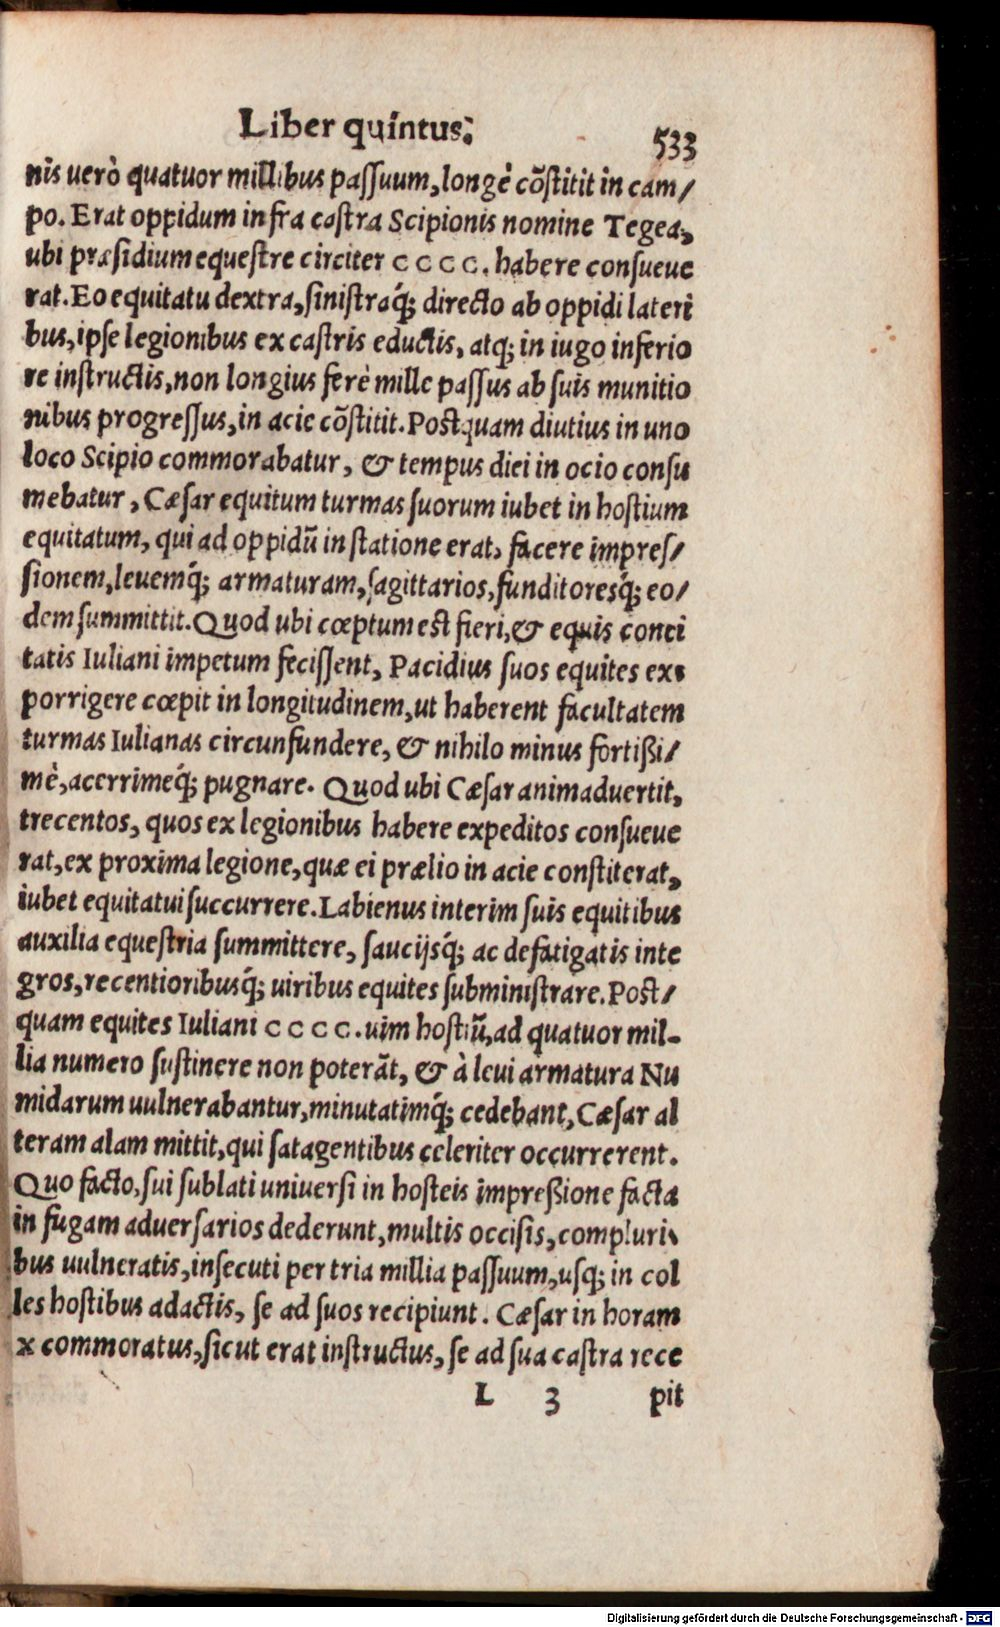 Liber quintus. 533
nis verò quatuor millibus paſſuum, longè cõſtitit in cam/
po. Erat oppidum infra caſtra Scipionis nomine Tegea,
ubi præſidium equeſtre circiter CCCC. habere conſueue
rat. Eo equitatu dextra, ſiniſtraq́; directo ab oppidi lateri
bus, ipſe legionibus ex caſtris eductis, atq; in iugo inferio
re inſtructis, non longius ferè mille paſſus ab ſuis munitio
nibus progreſſus, in acie cõſtitit. Poſtquam diutius in uno
loco Scipio commorabatur, & tempus diei in ocio conſu
mebatur, Cæſar equitum turmas ſuorum iubet in hoſtium
equitatum, qui ad oppidũ in ſtatione erat, facere impreſ/
ſionem, leuemq́; armaturam, ſagittarios, funditoresq́; eo/
dem ſummittit. Quod ubi cœptum eſt fieri, & equis conci
tatis Iuliani impetum feciſſent, Pacidius ſuos equites ex
porrigere cœpit in longitudinem, ut haberent facultatem
turmas Iulianas circunfundere, & nihilo minus fortißi/
mè, acerrimeq́; pugnare. Quod ubi Cæſar animaduertit,
trecentos, quos ex legionibus habere expeditos conſueue
rat, ex proxima legione, quæ ei prælio in acie conſtiterat,
iubet equitatui ſuccurrere. Labienus interim ſuis equitibus
auxilia equeſtria ſummittere, ſaucijsq́; ac defatigatis inte
gros, recentioribusq́; uiribus equites ſubminiſtrare. Poſt/
quam equites Iuliani CCCC. uim hoſtiũ, ad quatuor mil-
lia numero ſuſtinere non poterãt, & à leui armatura Nu
midarum uulnerabantur, minutatimq́; cedebant, Cæſar al
teram alam mittit, qui ſatagentibus celeriter occurrerent.
Quo facto, ſui ſublati univerſi in hoſteis impreßione facta
in fugam aduerſarios dederunt, multis occiſis, compluri
bus uulneratis, inſecuti per tria millia paſſuum, uſq; in col
les hoſtibus adactis, ſe ad ſuos recipiunt. Cæſar in horam
x commoratus, ſicut erat inſtructus, ſe ad ſua caſtra rece
L 3 pit
Digitalisierung gefördert durch die Deutsche Forschungsgemeinschaft - DFG